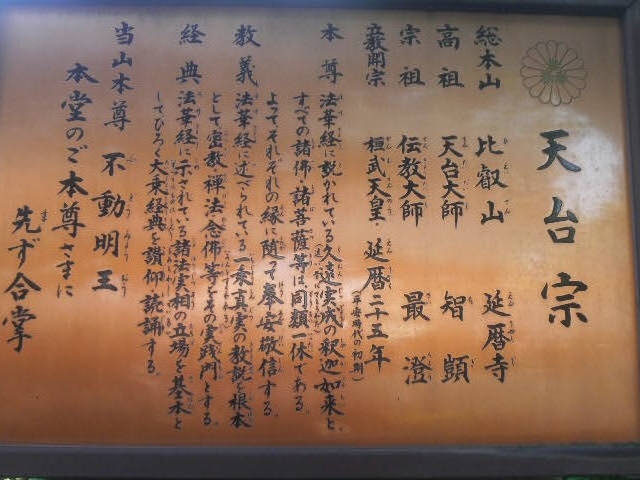 天台宗
総本山 比叡山 延暦寺
高祖 天台大師 智顗
宗祖 伝教大師 最澄
立教開宗 桓武天皇・延暦二十五年(平安時代の初期)
本尊 法華経に説かれている久遠実成の釈迦如来と
すべての諸佛・諸菩薩等は同類一体である
よってそれぞれの縁に随って奉安敬信する。
教義 法華経に述べられている一乗真実の教説を根本
として密教・禅法・念佛等をその実践門とする。
経典 法華経に示されている諸法実相の立場を基本と
してひろく大乗経典を讃仰読誦する。
当山本尊 不動明王
本堂のご本尊さまに
先ず合掌